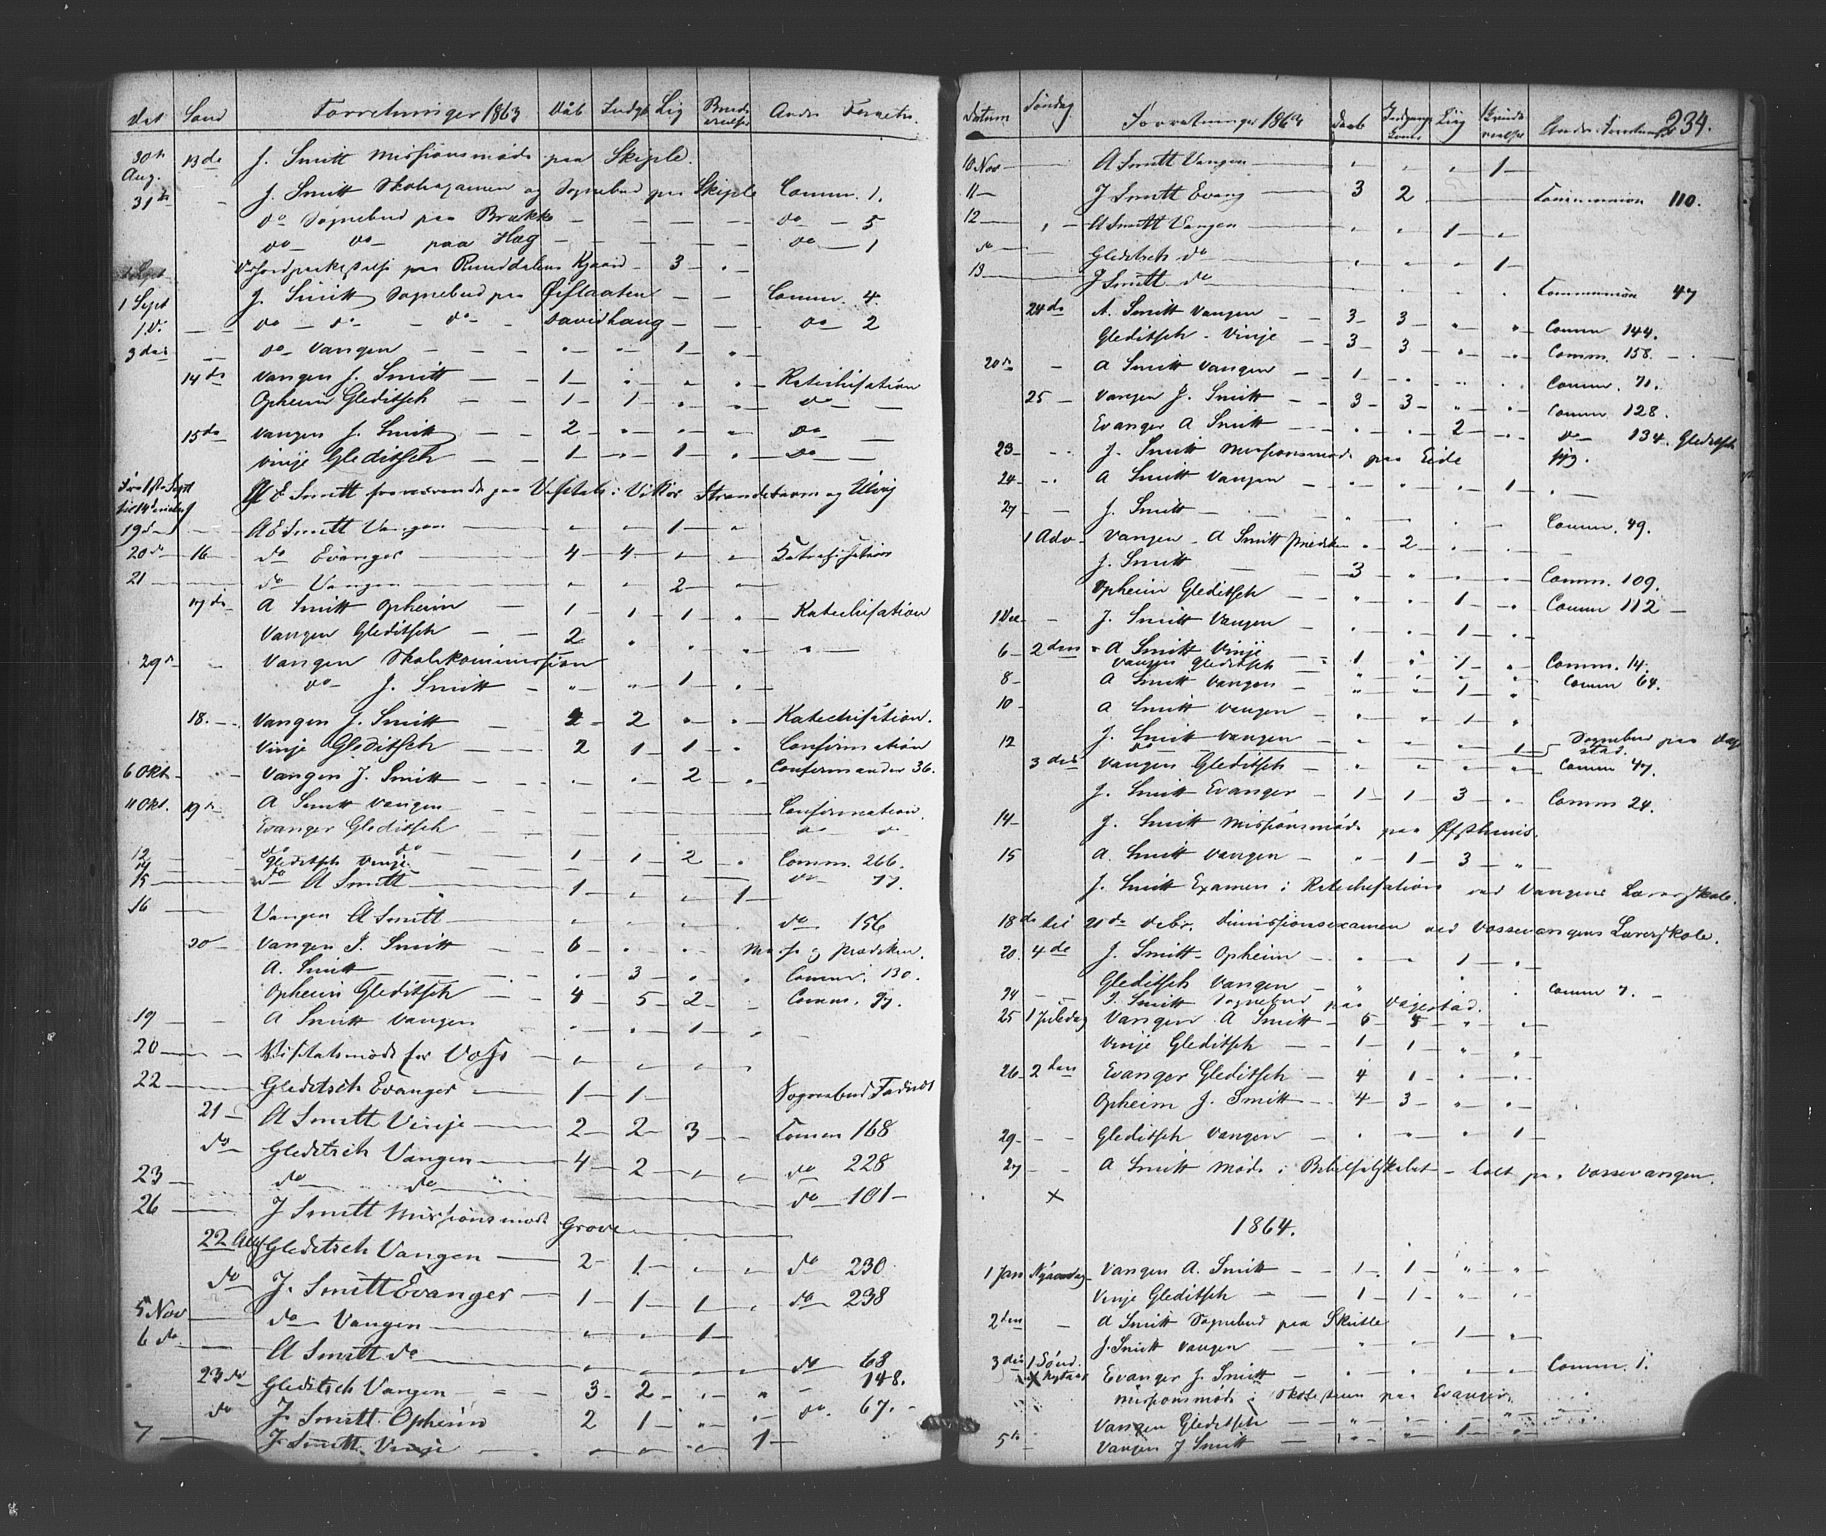 Dat Sønd Forretninger 1863 Dåb Indgk Lig Andr. Forretn.
30te Aug. 13de J. Smitt Missionsmøde paa Skiple.
31te J. Smitt Skoleexamen og Sognebud paa Skiple Comm. 1.
do Sognebud paa Brække do 5
do do paa Hæg do 1
paa Runddalens Kgaard 3
1 Sept J. Smitt Sognebud paa Comm. 4
1 d. do do do Davidhaug do 2
3die do Vangen 1
14de Vangen J. Smitt 1 Katechisation
Opheim Gleditsch 1 1 do
15de Vangen J. Smitt 2 do
Vinje Gleditsch 1 1 do
fra 1ste Sept til 14de A E Smitt fraværende paa Visitats i Vikør Strandebarm og Ulvig
19de A E Smitt Vangen 1
20de 16 do Evanger 4 4 Katechisation
21 do Vangen 2
17de A Smitt Opheim 1 1 1 Katechisation
Vangen Gleditsch 2
29de Vangen Skolekommission
do J. Smitt 1
18. Vangen J. Smitt 2 2 Katechisation.
Vinje Gleditsch 2 1 1 Confirmation
6 Okt Vangen J. Smitt 2 Confirmander 36.
11 Okt. 19de A Smitt Vangen Confirmation.
Evanger Gleditsch do do
12 do do 1 1 2 Comm. 266.
14 Gleditsch Vinje do 77.
15 do A Smitt 1 1
16 Vangen A Smitt do 156
20 Vangen J. Smitt 6 Messe og Prædiken.
A. Smitt 3 Comm. 130.
Opheim Gleditsch 4 5 2 Comm. 97.
19 A Smitt Vangen 1
20 Visitatsmøde for Voss
22 Gleditsch Evanger 1 1 Sognebud
21 A Smitt Vinje 2 2 3 Comm 168
do Gleditsch Vangen 4 2 do 228
23 do do do 101
26 J Smitt Missionsmøde Grove
22 Gleditsch Vangen 2 1 do 230
do J. Smitt Evanger 1 1 1 do 238
5 Nov do Vangen 1
6 do A Smitt do do 68
23de Gleditsch Vangen 3 2 148.
do J. Smitt Opheim 2 1 do. 67.
7 J. Smitt Vinje 1
Datum Søndag Forretninger 1863 Daab Lig Andre Forretn 234.
10 Nov A Smitt Vangen 1
11 J Smitt Evang 3 2 Communion 110.
12 A Smitt Vangen 1
do Gleditsch do 1
13 J Smitt do Communion 47
24de A. Smitt Vangen 3 3 Comm 144.
Gleditsch Vinje 3 3 Comm. 158.
20de A Smitt Vangen 1 Comm. 71.
25 Vangen J. Smitt 3 3 Comm. 128.
Evanger A Smitt 2 do 134. Gleditsch
23 J. Smitt Missionsmøde paa Eide syg.
24 A Smitt Vangen 1
27 J. Smitt Comm. 49.
1 Adv Vangen A Smitt 2
J. Smitt 3 Comm. 109.
Opheim Gleditsch 1 Comm 112
1 Dec J. Smitt Vangen 1
6 2den A Smitt Vinje 1 1 Comm. 14.
Vangen Gleditsch Comm 64.
8 A Smitt Vangen 1
10 A Smitt Vangen 1
12 J. Smitt Vangen 1 Sognebud paa
3die Vangen Gleditsch Comm 47.
J. Smitt Evanger 1 1 3 Comm 24.
14 J. Smitt Missionsmøde paa
15 A. Smitt Vangen 1 3
J. Smitt Examen i Katechisation ved Vangens Lærerskole.
18de til 21de Debr. Dimissionsexamen ved Vossevangens Lærerskole.
20. 4de J. Smitt Opheim 1
Gleditsch Vangen Comm 7.
24 J. Smitt Sognebud paa Vægestad.
25 1 Juledag Vangen A Smitt 5 5
Vinje Gleditsch 1 1
26 2den Evanger Gleditsch 4 1
Opheim J. Smitt 4 3
29 Gleditsch Vangen 1
27 A Smitt Møde i Bibelselskabet holt paa Vossevangen.
1864.
1 Jan Nyaarsdag Vangen A. Smitt 1 1
Vinje Gleditsch 1 1
2den A Smitt Sognebud paa
J. Smitt Vangen 1
3die 1 Sønd. Evanger J. Smitt Comm. 1.
Nytaar Missionsmøde i Skolestuen paa Evanger.
Vangen Gleditsch
5te Vangen J Smitt 1